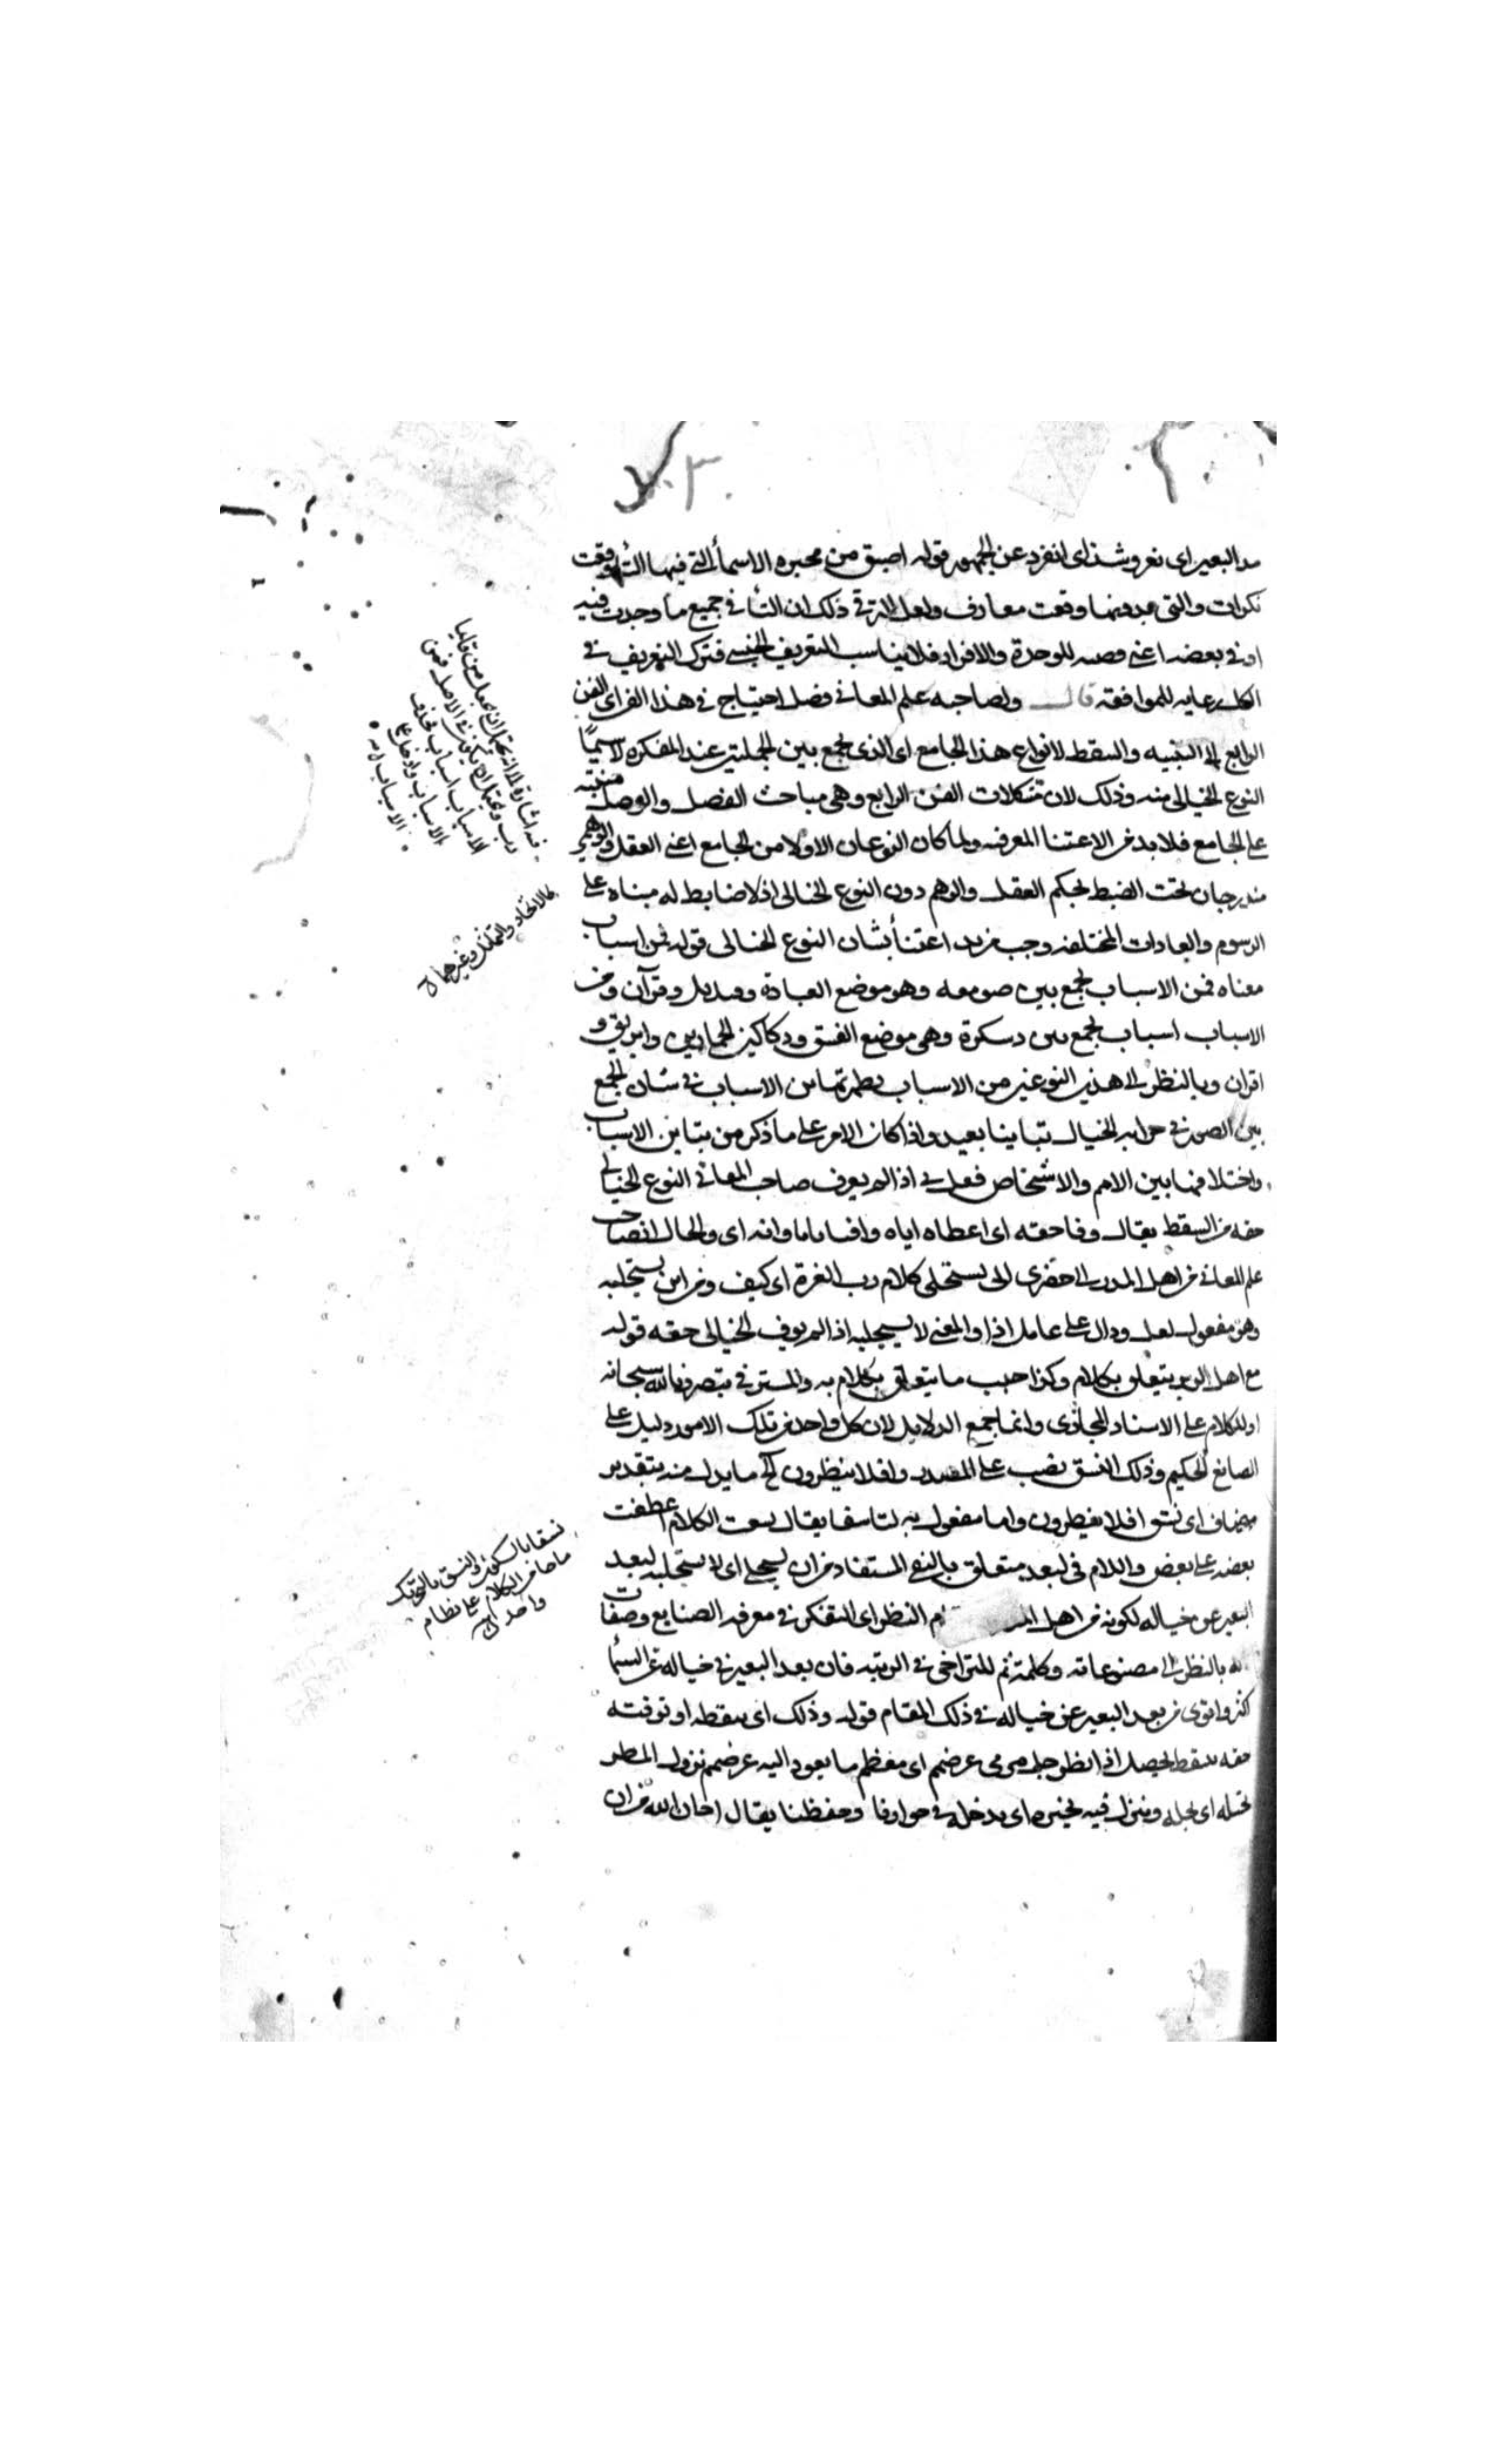 ند البعير اى نفر وشذ اى انفرد عن الجمهور قوله اضيق من محبرة الاسماء التى فيها التاء وقعت
نكرات والتى بدونها وقعت معارف ولعل السر فى ذلك ان التاء فى جميع ما وجدت فيه
او فى بعضه اعنى للوحدة والافراد فلا يناسب التعريف الجنسى فترك التعريف فى
الكل رعاية للموافقة قال ولصاحب علم المعانى فضل احتياج فى هذا الفن اى الفن
الرابع الى التنبيه والتيقظ لانواع هذا الجامع اى الذى يجمع بين الجملتين عند المفكرة لا سيما
النوع الخيالى منه وذلك لان مشكلات الفن الرابع وهى مباحث الفصل والوصل مبنية
على الجامع فلا بد من الاعتناء لمعرفته ولما كان النوعان الاولان من الجامع اعنى العقلى والوهمى
مندرجان تحت الضبط بحكم العقل والوهم دون النوع الخيالى اذ لا ضابط له مبناه على
الرسوم والعادات المختلفة وجب مزيد اعتناء بشان النوع الخيالى قوله فمن اسباب
معناه فمن الاسباب تجمع بين صومعة وهو موضع العبادة وقنديل وقرآن ومن
الاسباب اسباب تجمع بين دسكرة وهى موضع الفسق ودكاكين الخمارين وابريق و
اقران وبالنظر الى هذين النوعين من الاسباب يظهر تباين الاسباب فى شان الجمع
بين الصور فى خزانة الخيال تباينا بعيد واذا كان الامر على ما ذكر من تباين الاسباب
واختلافها بين الامم والاشخاص اذا لم يعرف صاحب المعانى النوع الخيالى
حقه من التيقظ يقال وفا حقه اى اعطاه اياه وافيا تاما وانه اى والحال ان صاحب
علم المعانى من اهل المدر اى حضرى انى يستحلى كلام رب العزة اى كيف ومن اين يستحليه
وهو مفعول ودال على عامل اذا والمعنى لا يستحليه اذا لم يوف الخيالى حقه قوله
مع اهل الوبر يتعلق بكلام وكذا حيث ما يتعلق بكلام به والمستتر فى يتصرفها لله سبحانه
او للكلام على الاسناد المجازى وانما جمع الدلايل لان كل واحد من تلك الامور دليل على
الصانع الحكيم وذلك النسق نصب على المصدر وافلا ينظرون الى ما يدل منه بتقدير
مضاف اى نسق افلا ينظرون واما مفعول به لناسقا يقال نسقت الكلام عطفت
بعضه على بعض واللام فى لبعد متعلق بالنفى المستفاد من ان يستحلى اى لا يستحليه لبعد
البعير عن خياله لكونه من اهل النظر اى التفكر فى معرفة الصانع وصفات
بالنظر الى مصنوعاته وكلمة ثم للتراخى فى الرتبة فان بعد البعير فى خياله عن السماء
اكثر واقوى من بعد البعير عن خياله فى ذلك المقام قوله وذلك اى تيقظه او توفيته
حقه تيقظ يحصل اذا نظر جل مرمى غرضهم اى معظم ما يعود اليه غرضهم نزول المطر
اى يحله وينزل فيه اى يدخل فى جوارنا وحفظنا يقال اجار الله من ان
كالاتحاد والتماثل وغيرهما
نسقا بالسكون والنسق بالتحريك
ما جاء من الكلام على نظام
واحد